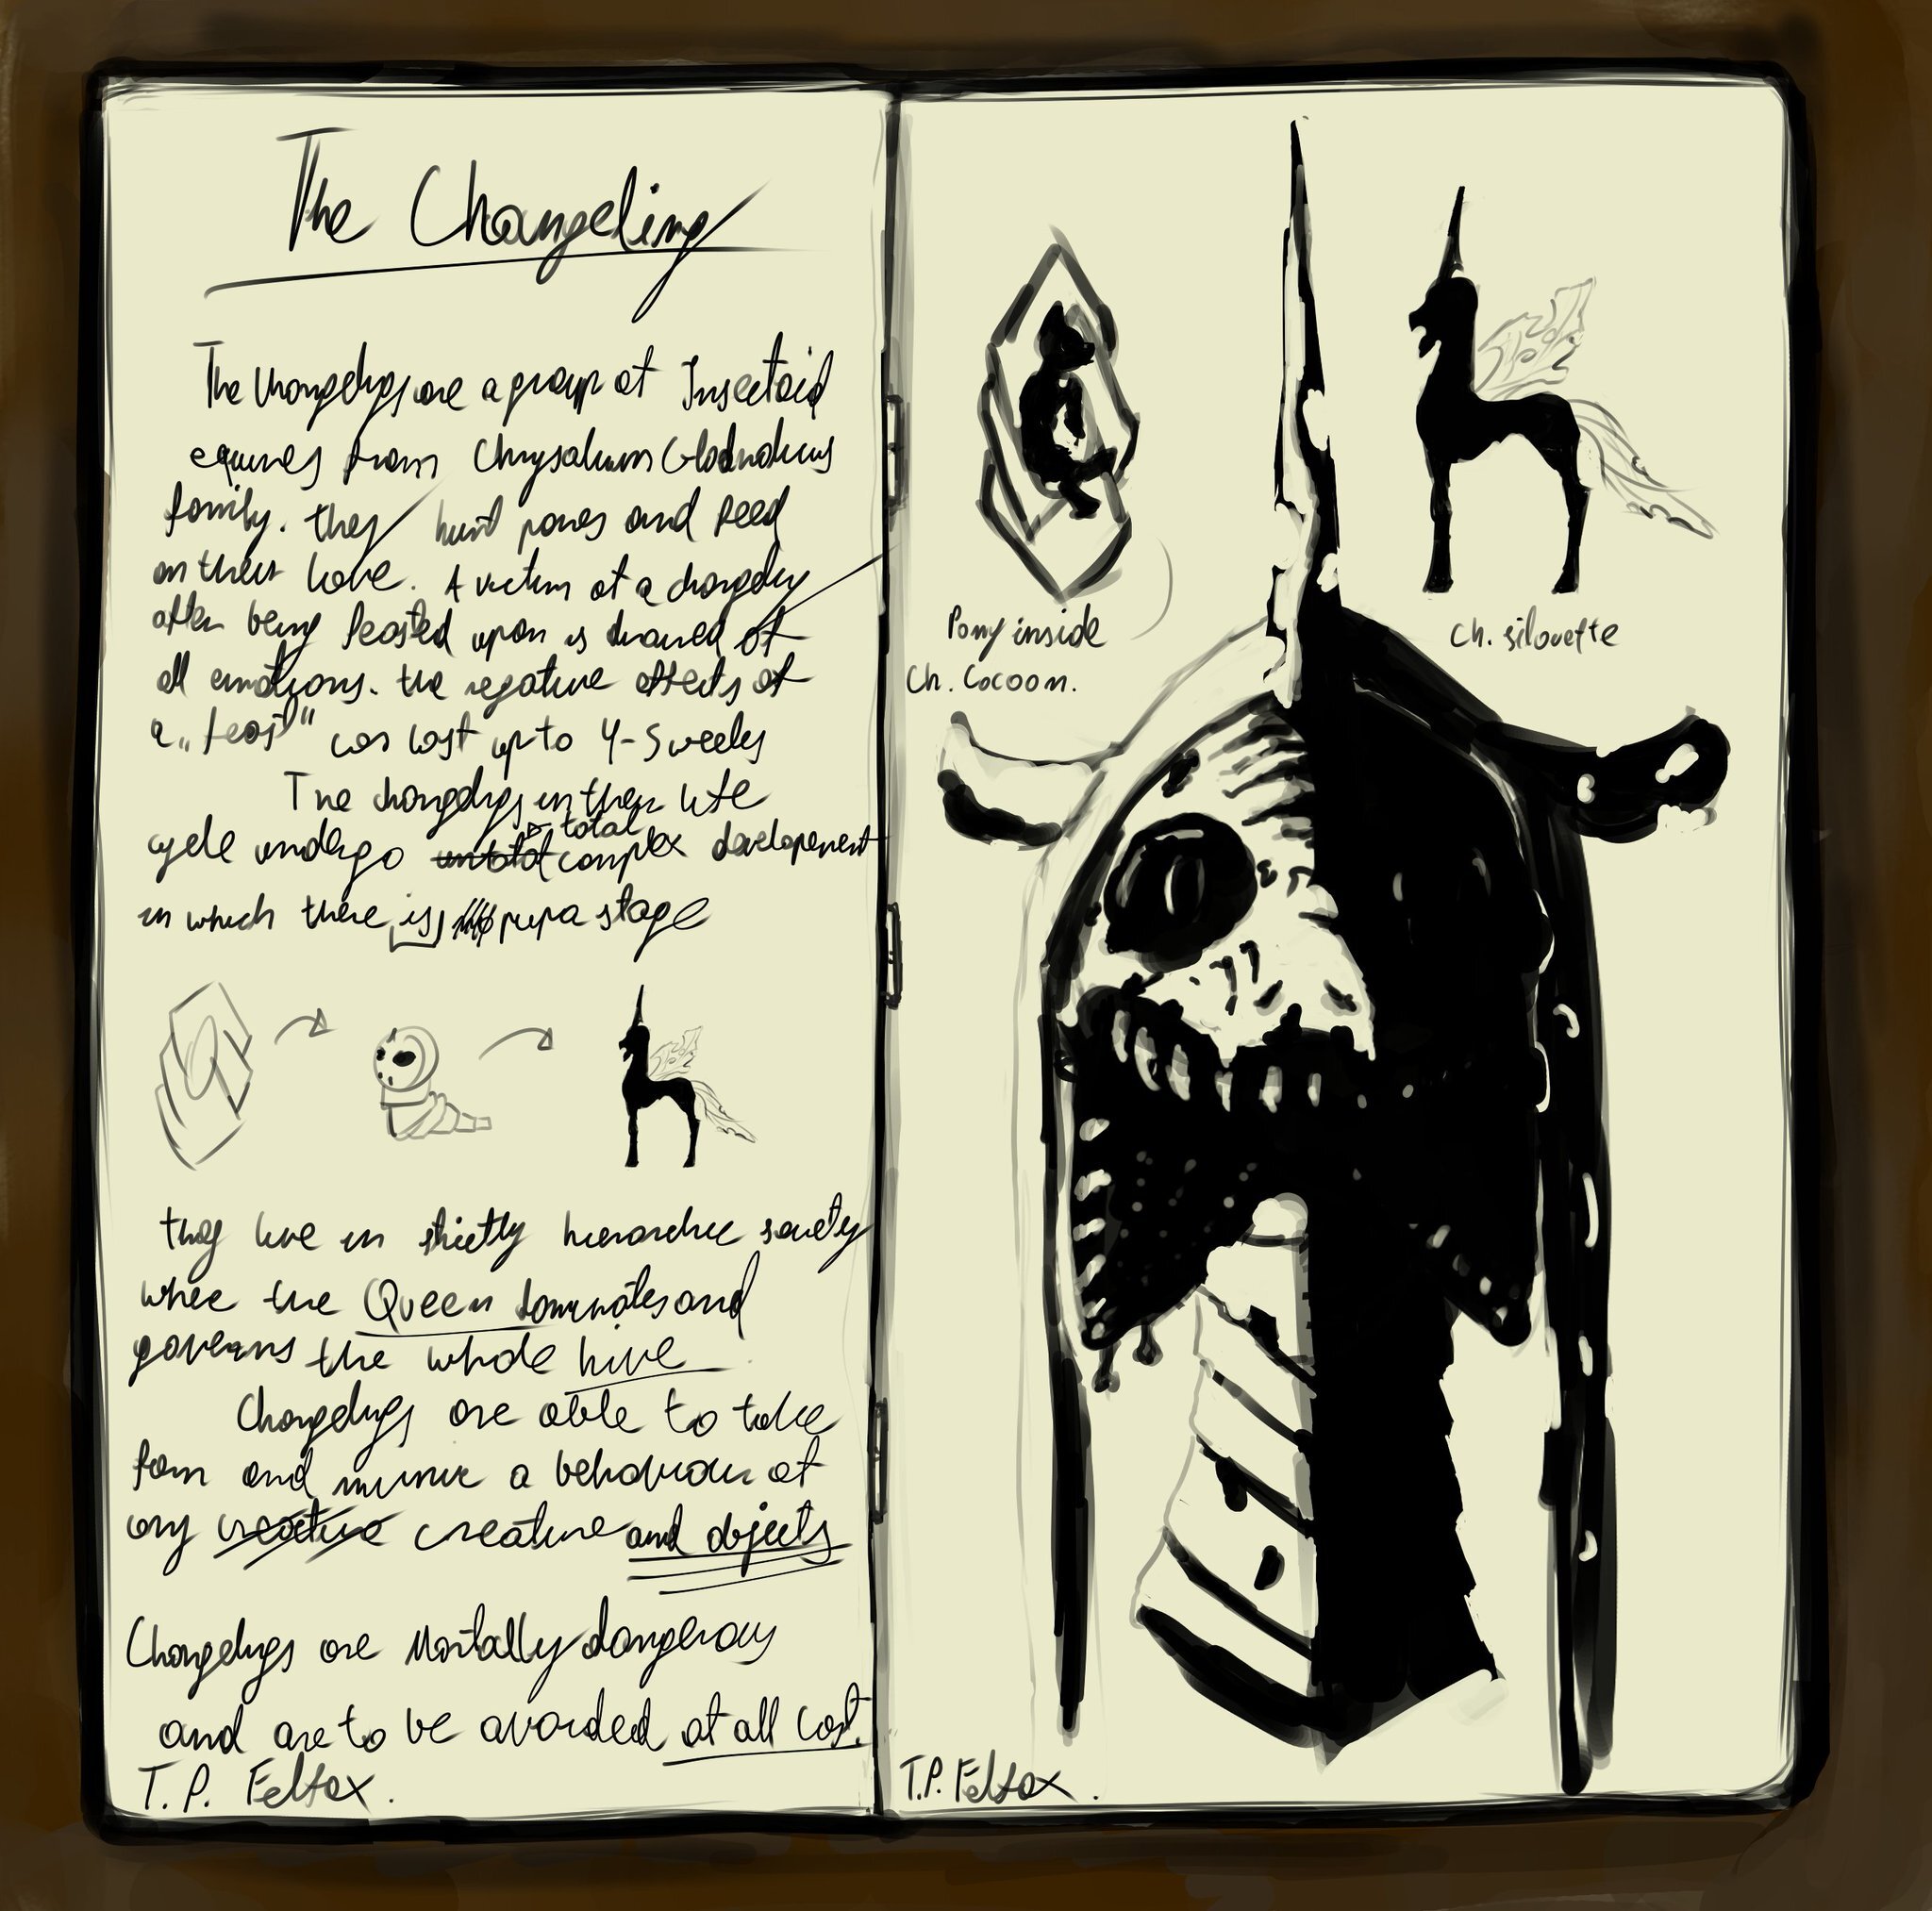 The Changeling
The Changelings are a group of Insectoid
equines from Chrysalium
family. they hunt ponies and feed
on their love. A victim of a changeling
after being feasted upon is drained of
all emotions. the negative effects of
a „feast" can last up to 4-5 weeks
The changelings in their life
cycle undergo total complex development
in which there is pupa stage
they live in strictly hierarchic society
where the Queen dominates and
governs the whole hive
Changelings are able to take
form and mimic a behaviour of
any creature creature and objects
Changelings are Mortally dangerous
and are to be avoided at all cost.
T. P. Felfox.
Pony inside
Ch. Cocoon.
Ch. silouette
T.P. Felfox.